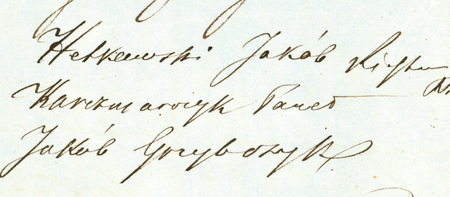 Hetkowski Jakób
Karczmarczyk Paweł
Jakób Grzyboszyk